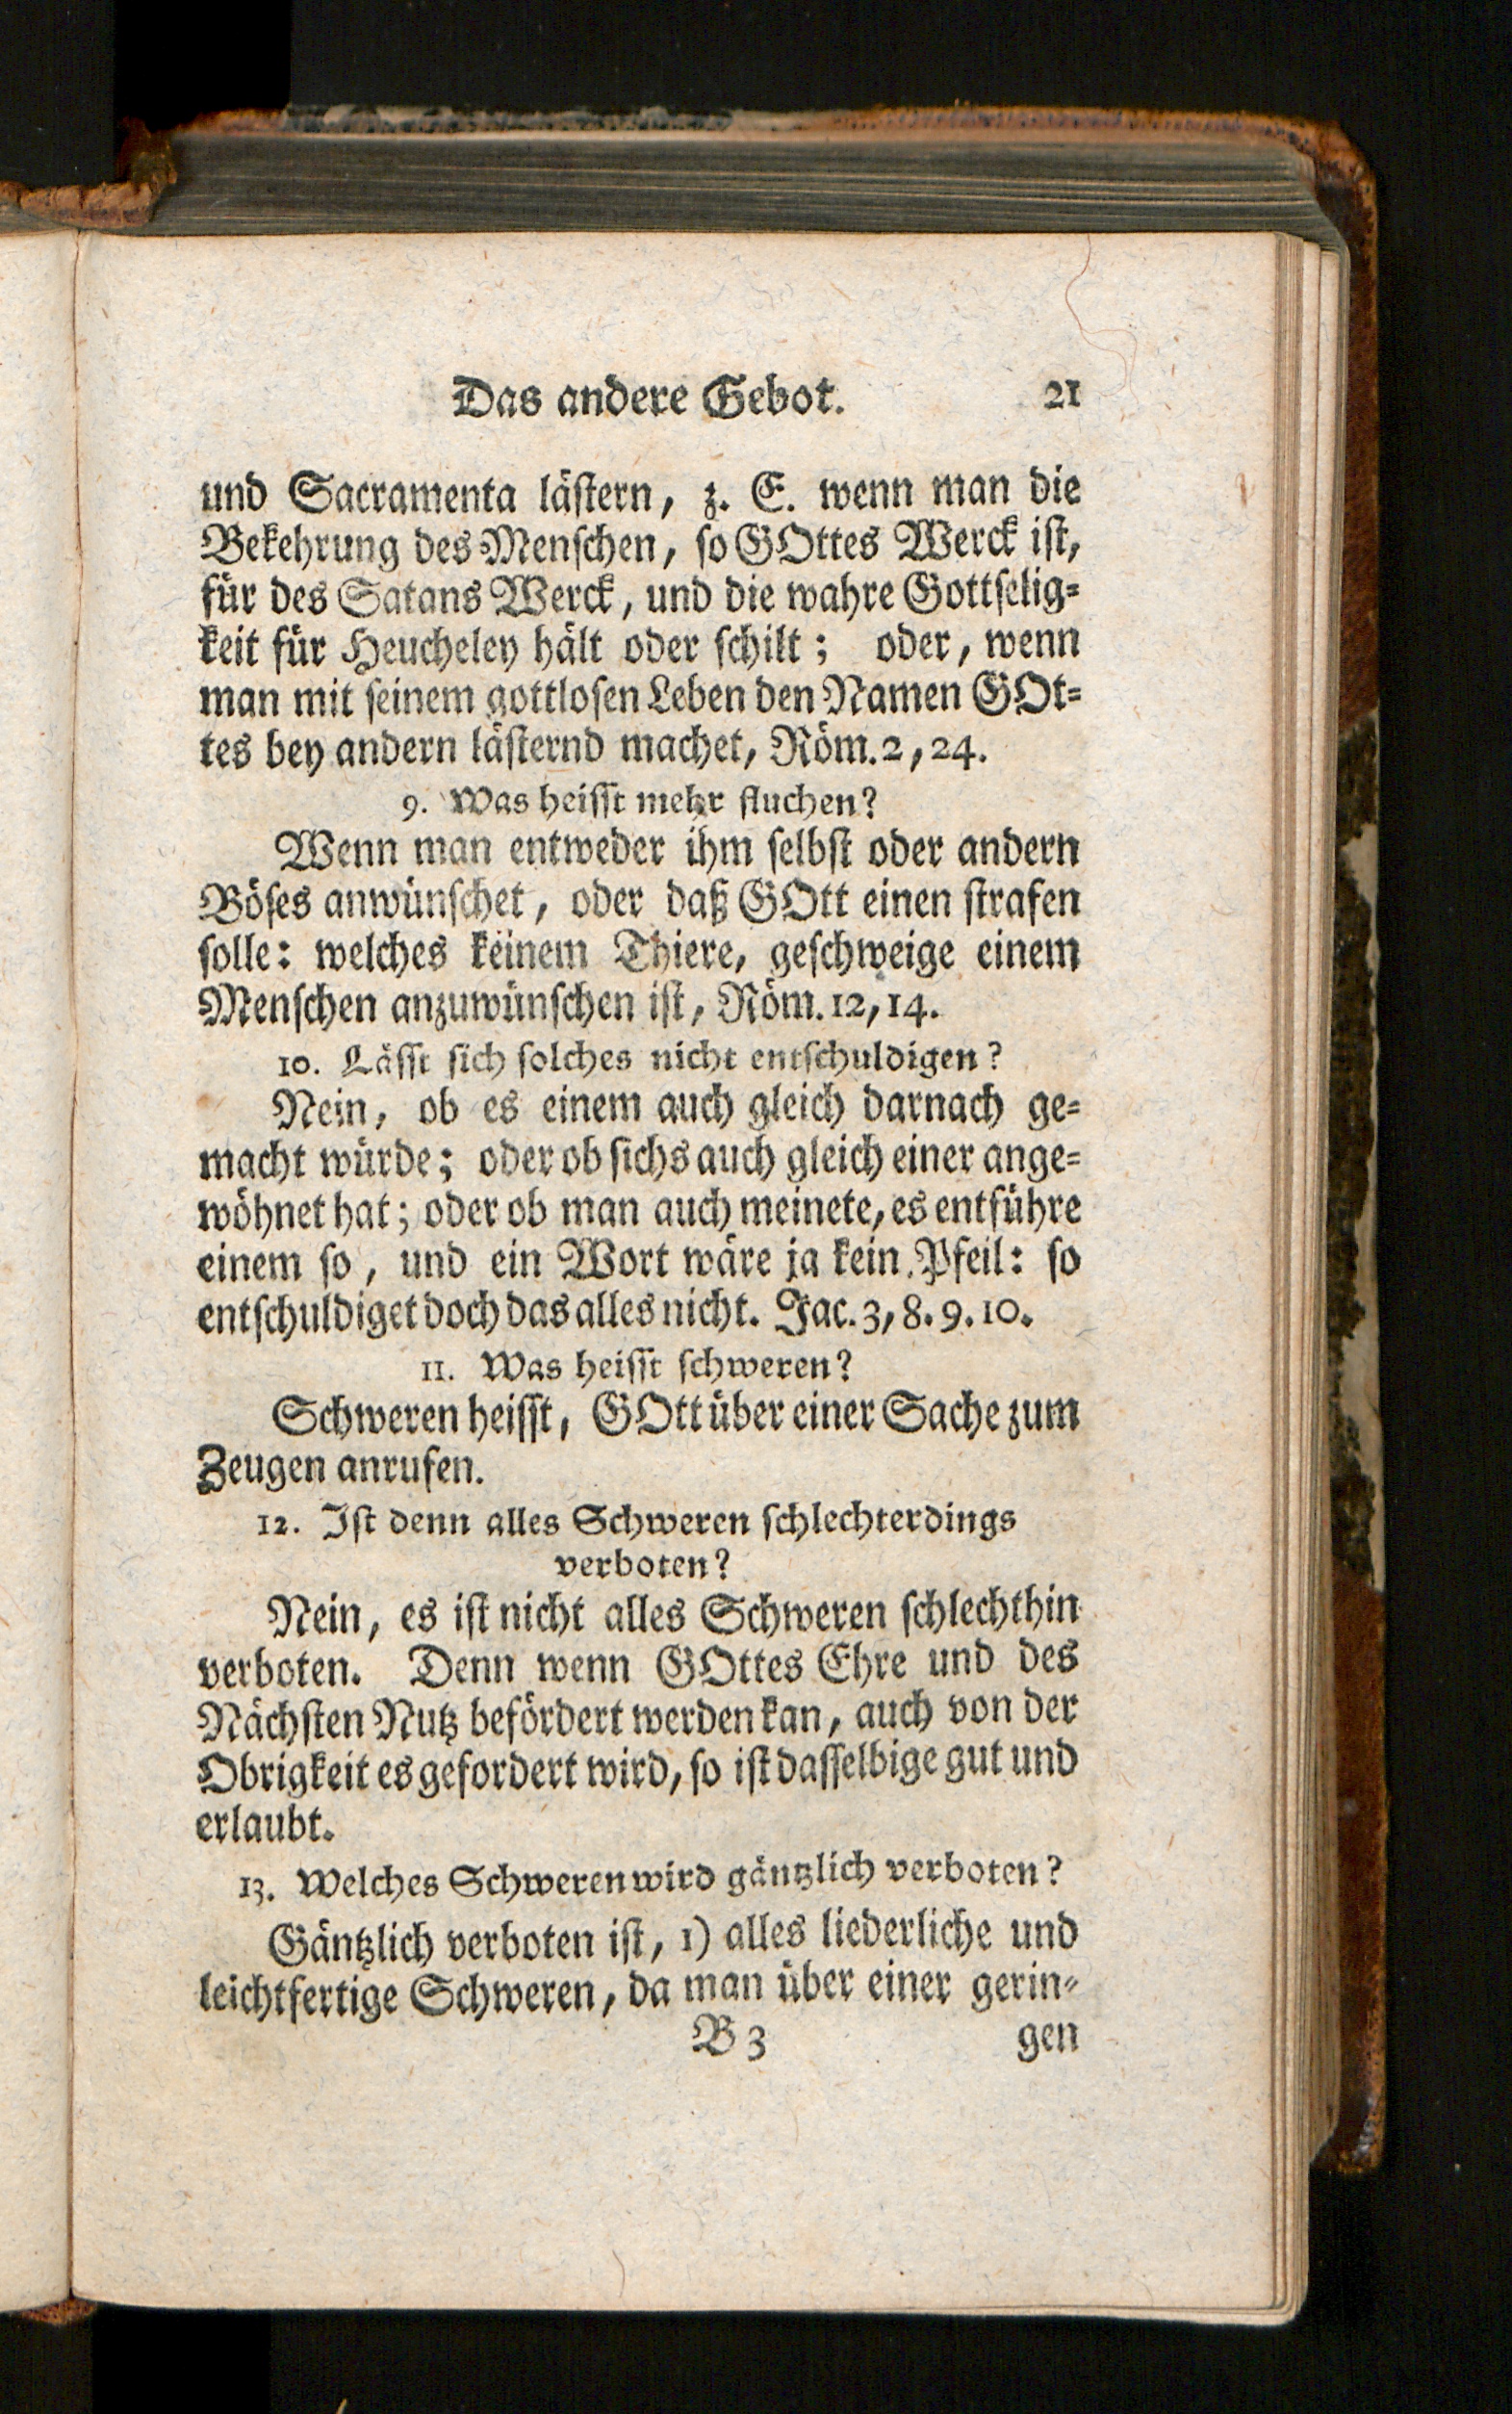 Das andere Gebot. 21
und Sacramenta lästern, z. E. wenn man die
Bekehrung des Menschen, so GOttes Werck ist,
für des Satans Werck, und die wahre Gottselig=
keit für Heucheley hält oder schilt; oder, wenn
man mit seinem gottlosen Leben den Namen GOt=
tes bey andern lästernd machet, Röm. 2, 24.
9. Was heisst mehr fluchen?
Wenn man entweder ihm selbst oder andern
Böses anwünschet, oder daß GOtt einen strafen
solle: welches keinem Thiere, geschweige einem
Menschen anzuwünschen ist, Röm. 12, 14.
10. Lässt sich solches nicht entschuldigen?
Nein, ob es einem auch gleich darnach ge=
macht würde; oder ob sichs auch gleich einer ange=
wöhnet hat; oder ob man auch meinete, es entführe
einem so, und ein Wort wäre ja kein Pfeil: so
entschuldiget doch das alles nicht. Jac. 3, 8. 9. 10.
11. Was heisst schweren?
Schweren heisst, GOtt über einer Sache zum
Zeugen anrufen.
12. Ist denn alles Schweren schlechterdings
verboten?
Nein, es ist nicht alles Schweren schlechthin
verboten. Denn wenn GOttes Ehre und des
Nächsten Nutz befördert werden kan, auch von der
Obrigkeit es gefordert wird, so ist dasselbige gut und
erlaubt.
13. Welches Schweren wird gäntzlich verboten?
Gäntzlich verboten ist, 1) alles liederliche und
leichtfertige Schweren, da man über einer gerin=
B 3 gen